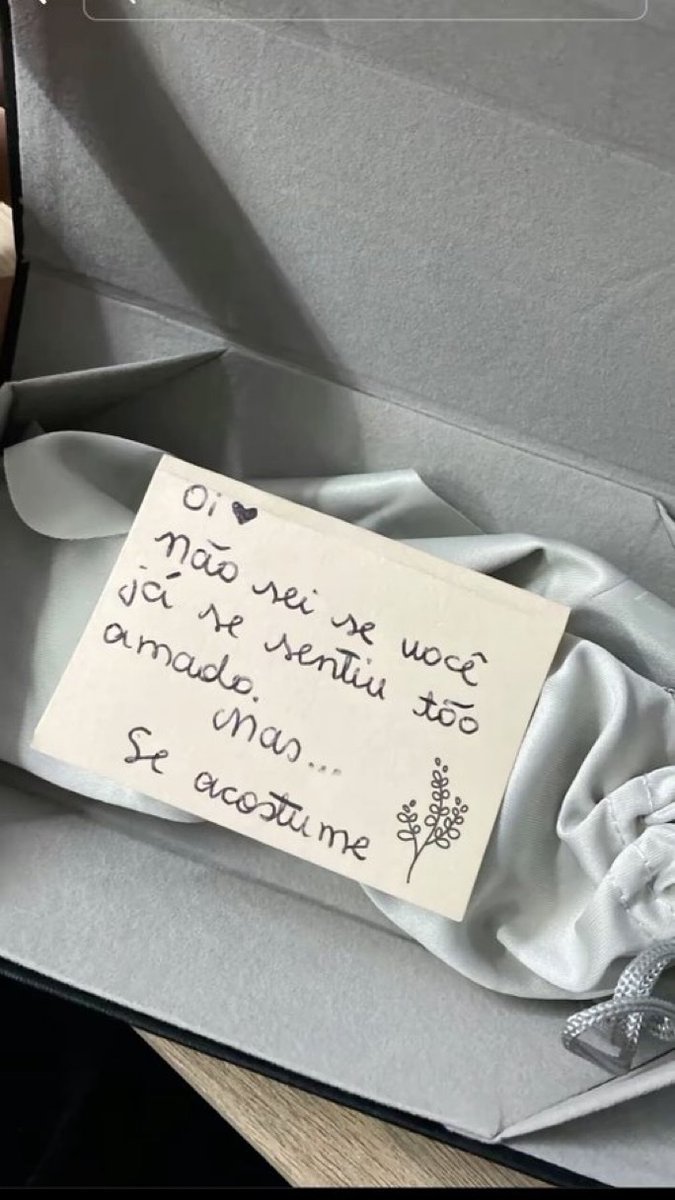 Oi
não sei se você
já se sentiu tão
amado.
Mas...
Se acostume